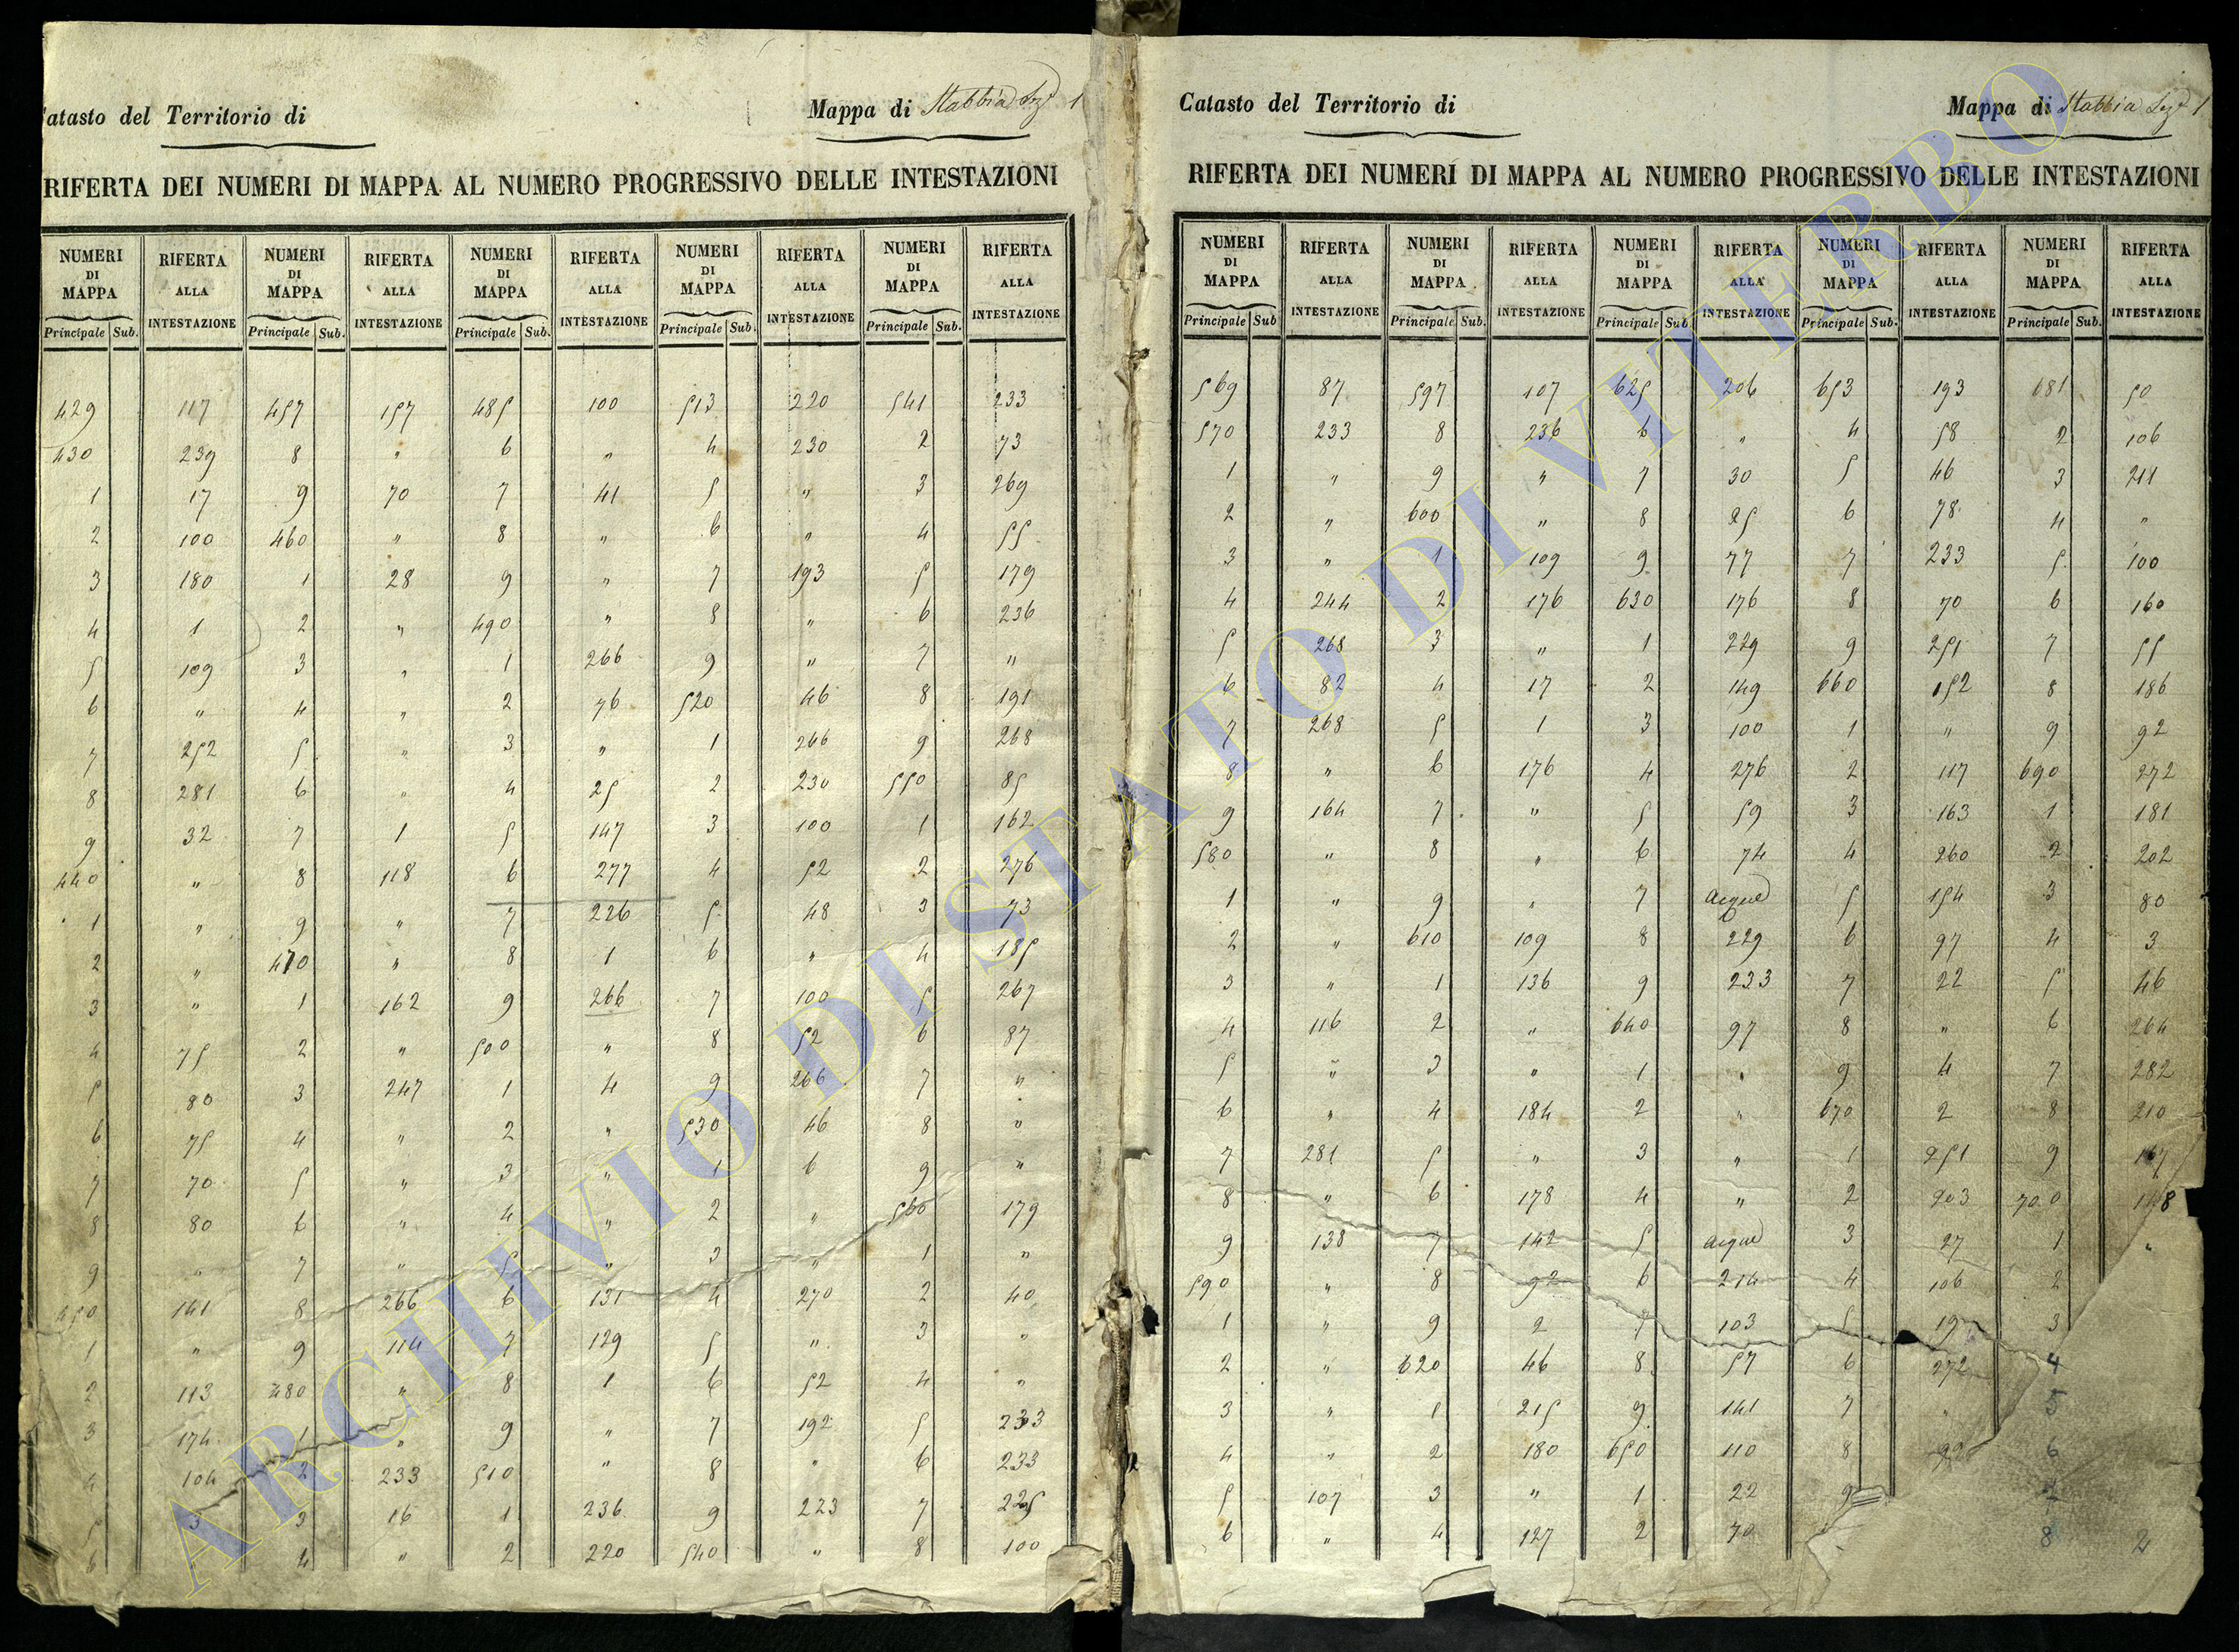 Catasto del Territorio di
Mappa di Stabbia Sez. 1
RIFERTA DEI NUMERI DI MAPPA AL NUMERO PROGRESSIVO DELLE INTESTAZIONI
NUMERI DI MAPPA RIFERTA ALLA INTESTAZIONE NUMERI DI MAPPA RIFERTA ALLA INTESTAZIONE NUMERI DI MAPPA RIFERTA ALLA INTESTAZIONE NUMERI DI MAPPA RIFERTA ALLA INTESTAZIONE NUMERI DI MAPPA RIFERTA ALLA INTESTAZIONE
Principale Sub. Principale Sub. Principale Sub. Principale Sub. Principale Sub.
429 117 457 157 485 100 513 220 541 233
430 239 8 " 6 " 4 230 2 73
1 17 9 70 7 41 5 " 3 269
2 100 460 " 8 " 6 " 4 55
3 180 1 28 9 " 7 193 5 179
4 1 2 " 490 " 8 " 6 236
5 109 3 " 1 266 9 " 7 "
6 " 4 " 2 76 520 46 8 191
7 252 5 " 3 " 1 266 9 268
8 281 6 " 4 25 2 230 550 85
9 32 7 1 5 147 3 100 1 162
440 " 8 118 6 277 4 52 2 276
1 " 9 " 7 226 5 48 3 73
2 " 470 " 8 1 6 " 4 185
3 " 1 162 9 266 7 100 5 267
4 75 2 " 500 " 8 52 6 87
5 80 3 247 1 4 9 266 7 "
6 75 4 " 2 " 530 46 8 "
7 70 5 " 3 " 1 6 9 "
8 80 6 " 4 " 2 " 560 179
9 " 7 " 5 " 3 " 1 "
450 141 8 266 6 131 4 270 2 40
1 " 9 114 7 129 5 " 3 "
2 113 480 " 8 1 6 52 4 "
3 174 1 " 9 " 7 192 5 233
4 104 2 233 510 " 8 " 6 233
5 3 3 16 1 236 9 223 7 225
6 " 4 " 2 220 540 " 8 100
Catasto del Territorio di
Mappa di Stabbia Sez. 1
RIFERTA DEI NUMERI DI MAPPA AL NUMERO PROGRESSIVO DELLE INTESTAZIONI
NUMERI DI MAPPA RIFERTA ALLA INTESTAZIONE NUMERI DI MAPPA RIFERTA ALLA INTESTAZIONE NUMERI DI MAPPA RIFERTA ALLA INTESTAZIONE NUMERI DI MAPPA RIFERTA ALLA INTESTAZIONE NUMERI DI MAPPA RIFERTA ALLA INTESTAZIONE
Principale Sub Principale Sub. Principale Sub Principale Sub. Principale Sub.
569 87 597 107 625 206 653 193 681 50
570 233 8 236 6 " 4 58 2 106
1 " 9 " 7 30 5 46 3 211
2 " 600 " 8 25 6 78 4 "
3 " 1 109 9 77 7 233 5 100
4 244 2 176 630 176 8 70 6 160
5 268 3 " 1 229 9 251 7 55
6 82 4 17 2 149 660 152 8 186
7 268 5 1 3 100 1 " 9 92
8 " 6 176 4 276 2 117 690 272
9 164 7 " 5 59 3 163 1 181
580 " 8 " 6 74 4 260 2 202
1 " 9 " 7 acque 5 154 3 80
2 " 610 109 8 229 6 97 4 3
3 " 1 136 9 233 7 22 5 46
4 116 2 " 640 97 8 " 6 264
5 " 3 " 1 " 9 4 7 282
6 " 4 184 2 " 670 2 8 210
7 281 5 " 3 " 1 251 9 167
8 " 6 178 4 " 2 203 700 148
9 138 7 142 5 acque 3 27 1 "
590 " 8 92 6 214 4 106 2
1 " 9 2 7 103 5 19 3
2 " 620 46 8 57 6 272 4
3 " 1 215 9 141 7 " 5
4 " 2 180 650 110 8 99 6
5 107 3 " 1 22 9 7
6 " 4 127 2 70 8 2
ARCHIVIO DI STATO DI VITERBO